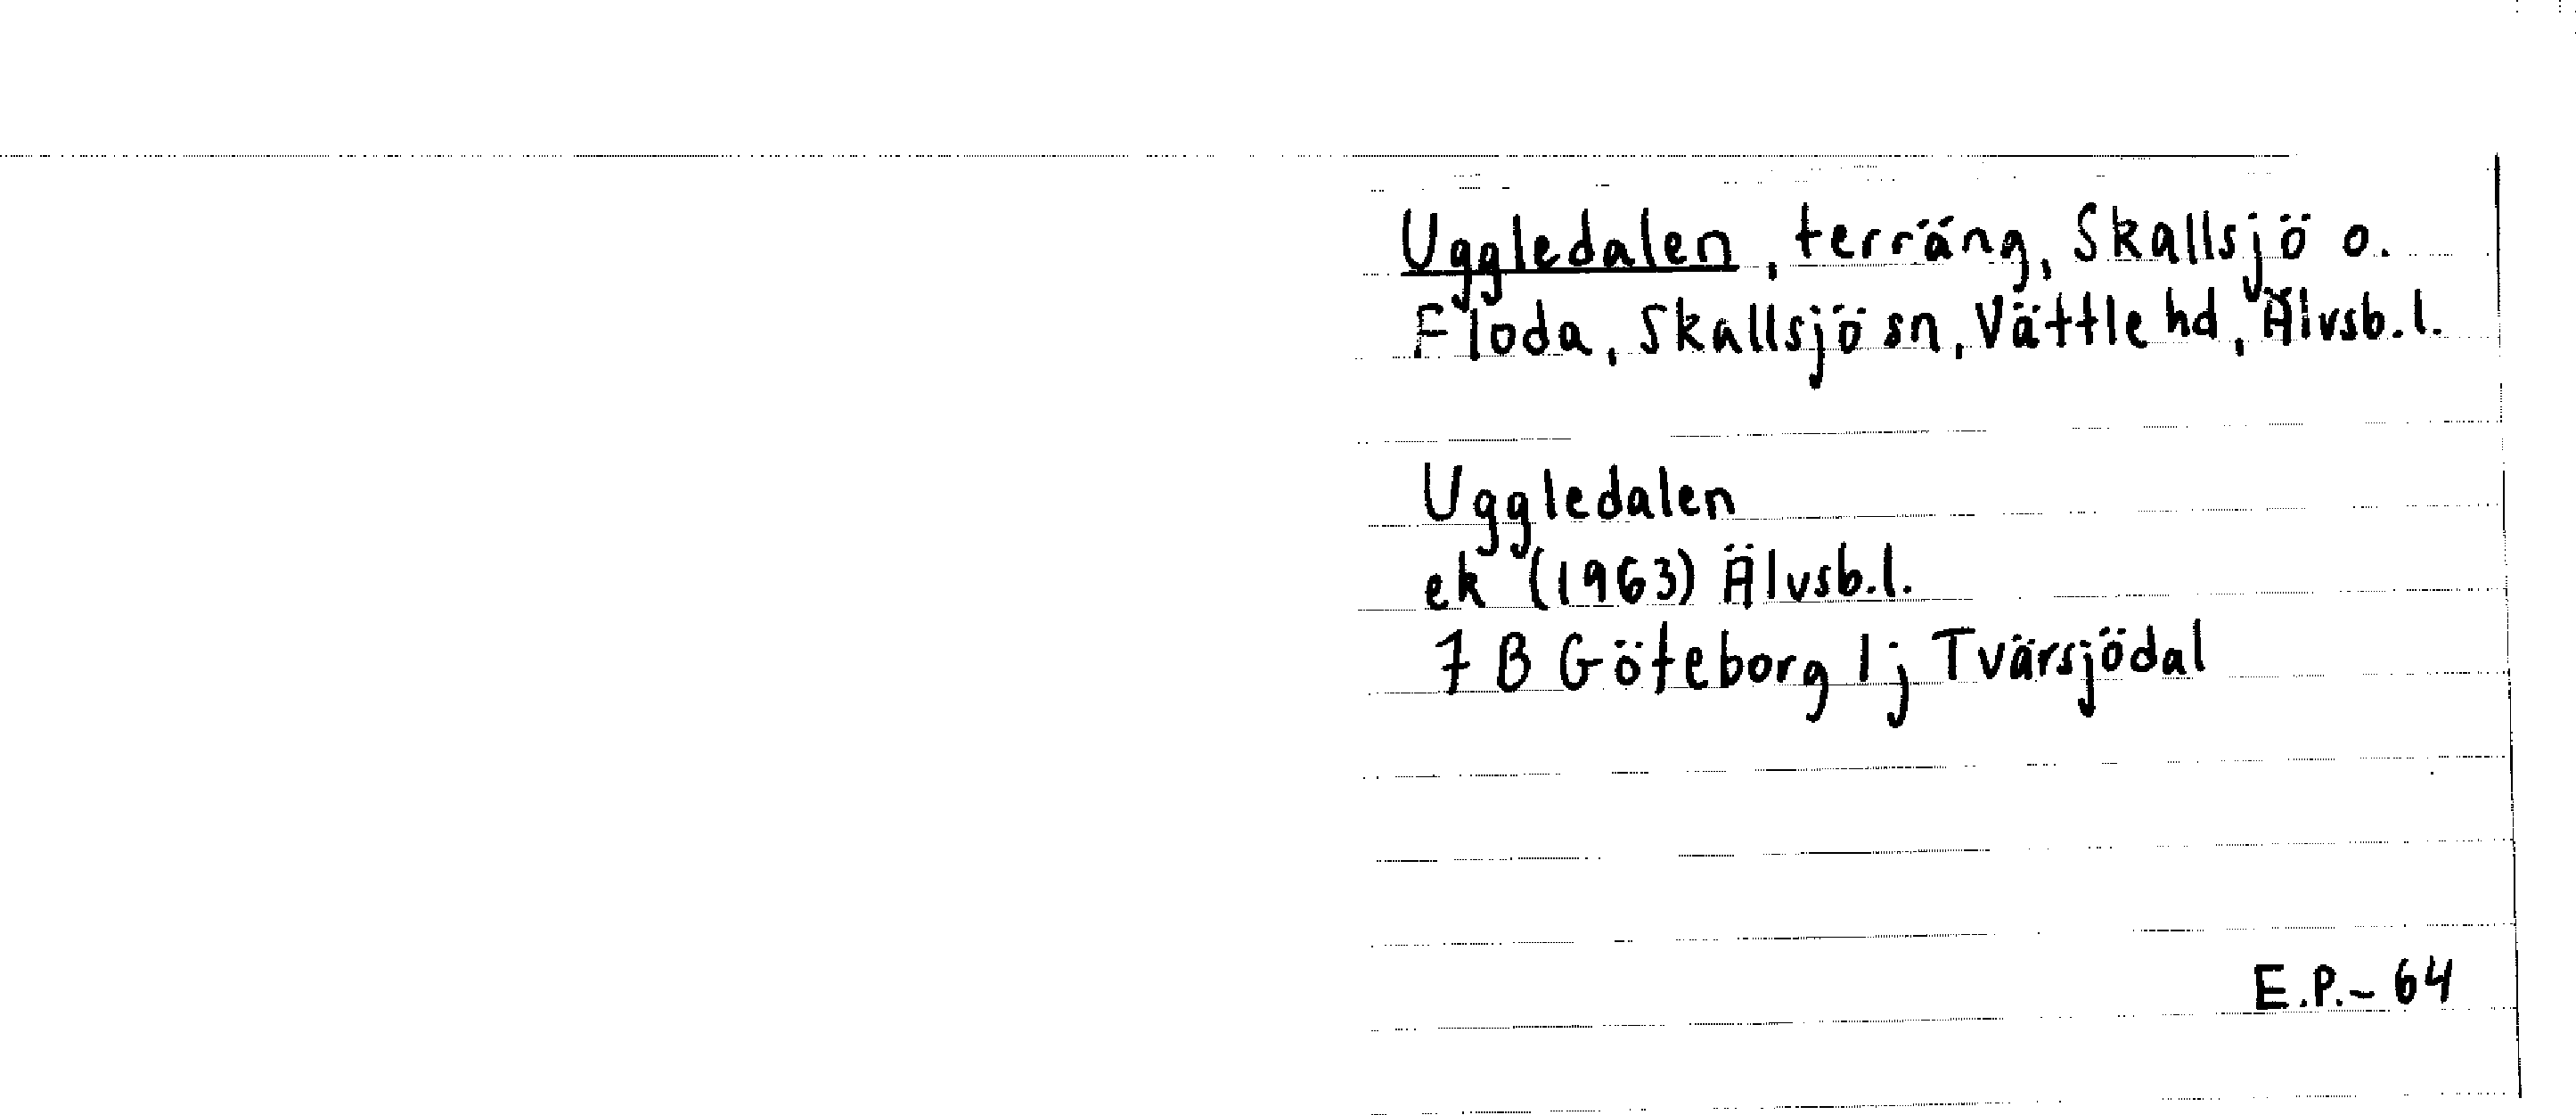 Uggledalen, terräng, Skallsjö o.
Floda, Skallsjö sn, Vättle hd, Älvsb.l.
Uggledalen
ek (1963) Älvsb.l.
7 B Göteborg 1j Tvärsjödal
E.P.-64